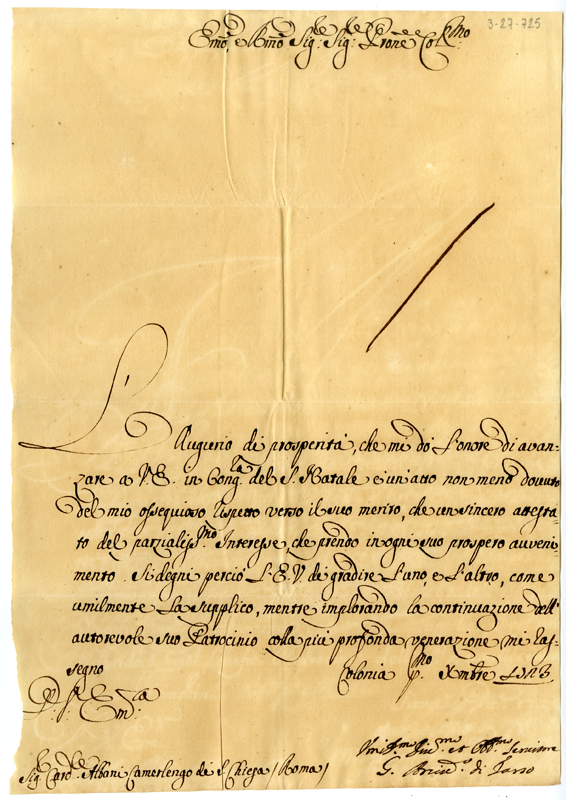 3-27-725
Emo, e Rmo Sig:re Sig:re Prone Colmo
L'Augurio di prosperità, che mi do l'onore di avan-
zare a V.E. in Cong.la del S. Natale è un'atto non meno dovuto
del mio ossequioso rispetto verso il suo merito, che un sincero attesta-
to del parzialiss.mo Interesse, che prendo in ogni suo prospero avveni-
mento. Si degni perciò L'E.V. di gradire l'uno, e l'altro, come
umilmente La supplico, mentre implorando la continuazione dell'
autorevole suo Patrocinio colla più profonda venerazione mi ras-
segno
Colonia p.mo Xmbre
Em.za
Sig. Card.le Albani Camerlengo di S. Chiesa /Roma/
et Obb.mo Servitore
G. di Tarso